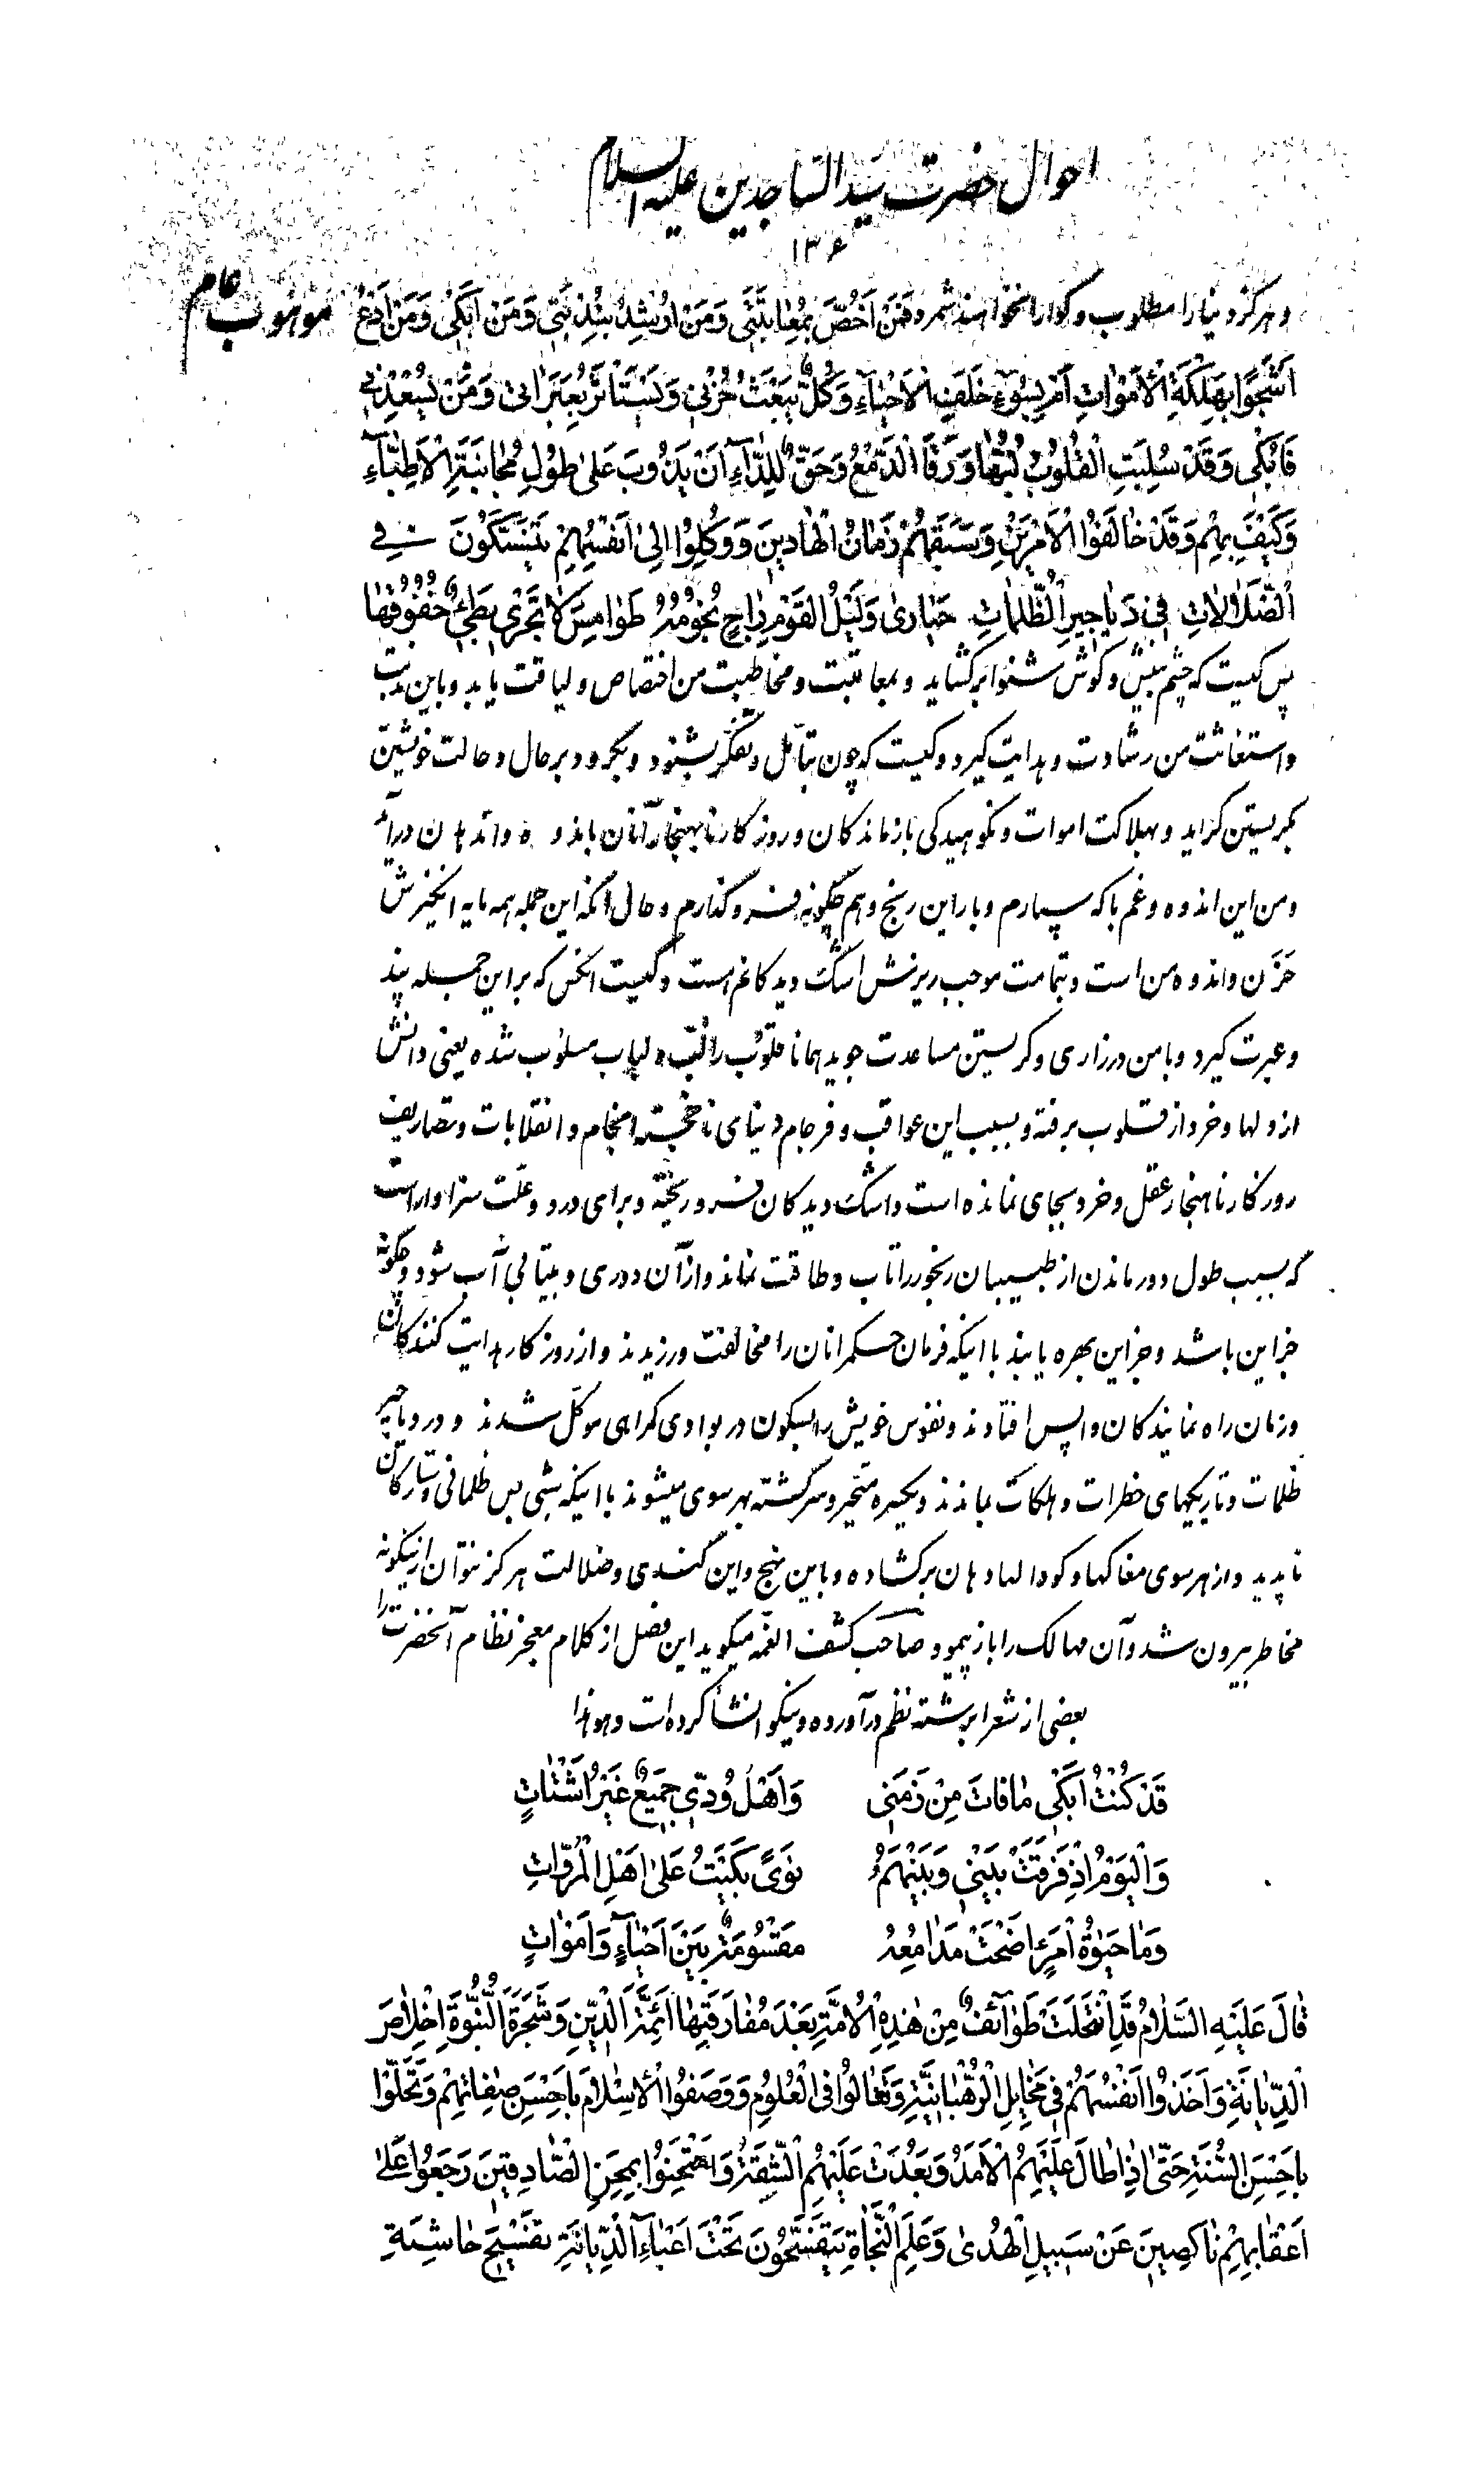 احوال حضرت سید الساجدین علیه السلام
۱۳۶
و هرگز دنیا را مطلوب و گوارا نخواهند شمرد فَمَنْ اَخُصُّ بِمُعاتَبَتی وَمَنْ اُرْشِدُ بِنُدْبَتی وَمَنْ اَبْکی وَمَنْ اَدَعُ
موهوب عام
اَشْجُوًا بِهَلَکَةِ الْاَمْواتِ اَمْ بِسُوءِ خَلَفِ الْاَحْیآءِ وَکُلٌّ یَبْعَثُ حُزْنی وَیَسْتَاْثِرُ بِعَبَراتی وَمَنْ یُسْعِدُنی
فَاَبْکی وَقَدْ سُلِبَتِ الْقُلُوبُ لُبَّها وَرَقَا الدَّمْعُ وَحَقٌّ لِلدّآءِ اَنْ یَذُوبَ عَلیٰ طُولِ مُجانَبَةِ الْاَطِبّآءِ
وَکَیْفَ بِهِمْ وَقَدْ خالَفُوا الْاَمْرینَ وَسَبَقَهُمْ زَمانُ الْهادینَ وَوُکِلُوا اِلیٰ اَنْفُسِهِمْ یَتَنَسَّکُونَ فی
الضَّلالاتِ فی دَیاجیرِ الظُّلُماتِ حَیاریٰ وَلَیْلُ الْقَوْمِ داجٍ نُجُومُهُ طَوامِسُ لا تَجْری بَطِیٌّ خُفُوقُها
پس کیست که چشم بینش و گوش شنوا برگشاید و بمعاتبت و مخاطبت من اختصاص و لیاقت یابد و باین ندبت
و استغاثت من رشادت و هدایت گیرد و کیست که چون بتأمل و تفکر بشنود و بگرود بر حال و حالت خویشتن
بگریستن گراید و بهلاکت اموات و نکوهیدگی بازماندگان و روزگار نابهنجار آنان باندوه و اندهان درآید
و من این اندوه و غم با که سپارم و بار این رنج و هم چگونه فرو گذارم و حال آنکه این جمله همه مایه انگیزش
حزن و اندوه من است و بتمامت موجب ریزش اشک دیدگانم است و کیست آنکس که بر این جمله پند
و عبرت گیرد و با من در زاری و گریستن مساعدت جوید همانا قلوب را لب و لباب مسلوب شده یعنی دانش
از دلها و خرد از قلوب برفته و بسبب این عواقب و فرجام دنیای ناخجسته انجام و انقلابات و تصاریف
روزگار ناهنجار عقل و خرد بجای نمانده است و اشک دیدگان فرو ریخته و برای درد و علت سزاوار است
که بسبب طول دور ماندن از طبیبان رنجور را تاب و طاقت نماند و از آن دوری و بیتابی آب شود و چگونه
جز این باشد و جز این بهره یابند با اینکه فرمان حکمرانان را مخالفت ورزیدند و از روزگار هدایت کنندگان
و زمان راه نمایندگان واپس افتادند و نفوس خویش را بسکون در بوادی گمراهی موکل شدند و در دیاجیر
ظلمات و تاریکیهای خطرات و هلکات بماندند و یکبیره متحیر و سرگشته بهر سوی میشوند با اینکه شبی بس ظلمانی و ستارگان
ناپدید و از هر سوی مغاکها و گودالها دهان برگشاده و باین نهج و این کندی و ضلالت هرگز نتوان از اینگونه
مخاطر بیرون شد و آن مهالک را باز پیمود صاحب کشف الغمه میگوید این فصل از کلام معجز نظام آنحضرت را
بعضی از شعرا برشته نظم درآورده و نیکو انشا کرده است و هو هذا
قَدْ کُنْتُ اَبْکی ما فاتَ مِنْ زَمَنی وَاَهْلُ وُدّی جَمیعٌ غَیْرُ اَشْتاتٍ
وَالْیَوْمُ اِذْ فَرَّقَتْ بَیْنی وَبَیْنَهُمُ نَویً بَکَیْتُ عَلیٰ اَهْلِ الْمُرُوّاتِ
وَما حَیٰوةُ امْرِءٍ اَضْحَتْ مَدامِعُهُ مَقْسُومَةٌ بَیْنَ اَحْیآءٍ وَاَمْواتٍ
قالَ عَلَیْهِ السَّلامُ قَدِ انْتَحَلَتْ طَوآئِفُ مِنْ هٰذِهِ الْاُمَّةِ بَعْدَ مُفارَقَتِها اَئِمَّةَ الدّینِ وَشَجَرَةَ النُّبُوَّةِ اِخْلاصَ
الدِّیانَةِ وَاَخَذُوا اَنْفُسَهُمْ فی مَخایِلِ الرُّهْبانِیَّةِ وَتَغالَوْا فِی الْعُلُومِ وَوَصَفُوا الْاِسْلامَ بِاَحْسَنِ صِفاتِهِمْ وَتَحَلَّوْا
بِاَحْسَنِ السُّنَّةِ حَتّیٰ اِذا طالَ عَلَیْهِمُ الْاَمَدُ وَبَعُدَتْ عَلَیْهِمُ الشُّقَّةُ وَامْتُحِنُوا بِمِحَنِ الصّادِقینَ رَجَعُوا عَلیٰ
اَعْقابِهِمْ ناکِصینَ عَنْ سَبیلِ الْهُدیٰ وَعَلَمِ النَّجاةِ یَتَفَسَّحُونَ تَحْتَ اَعْبآءِ الدِّیانَةِ تَفَسُّحَ حاشِیَةِ